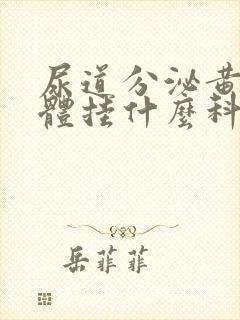 尿道分泌黃
體挂什麼科
岳菲菲